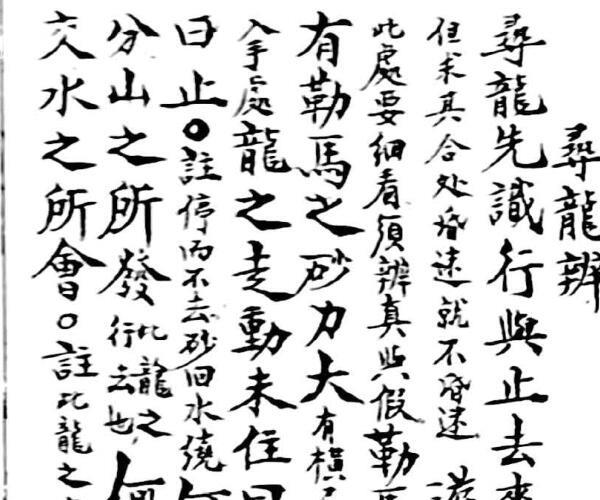 尋龍辨
尋龍先識行與止去來
但求其合处昏迷就不昏迷
此處要细看須辨真與假勒馬
有勒馬之砂力大有橫
入手處龍之走動未住曰
曰止○註停而不去砂回水绕
分山之所發此龍之行去也何
交水之所會○註此龍之